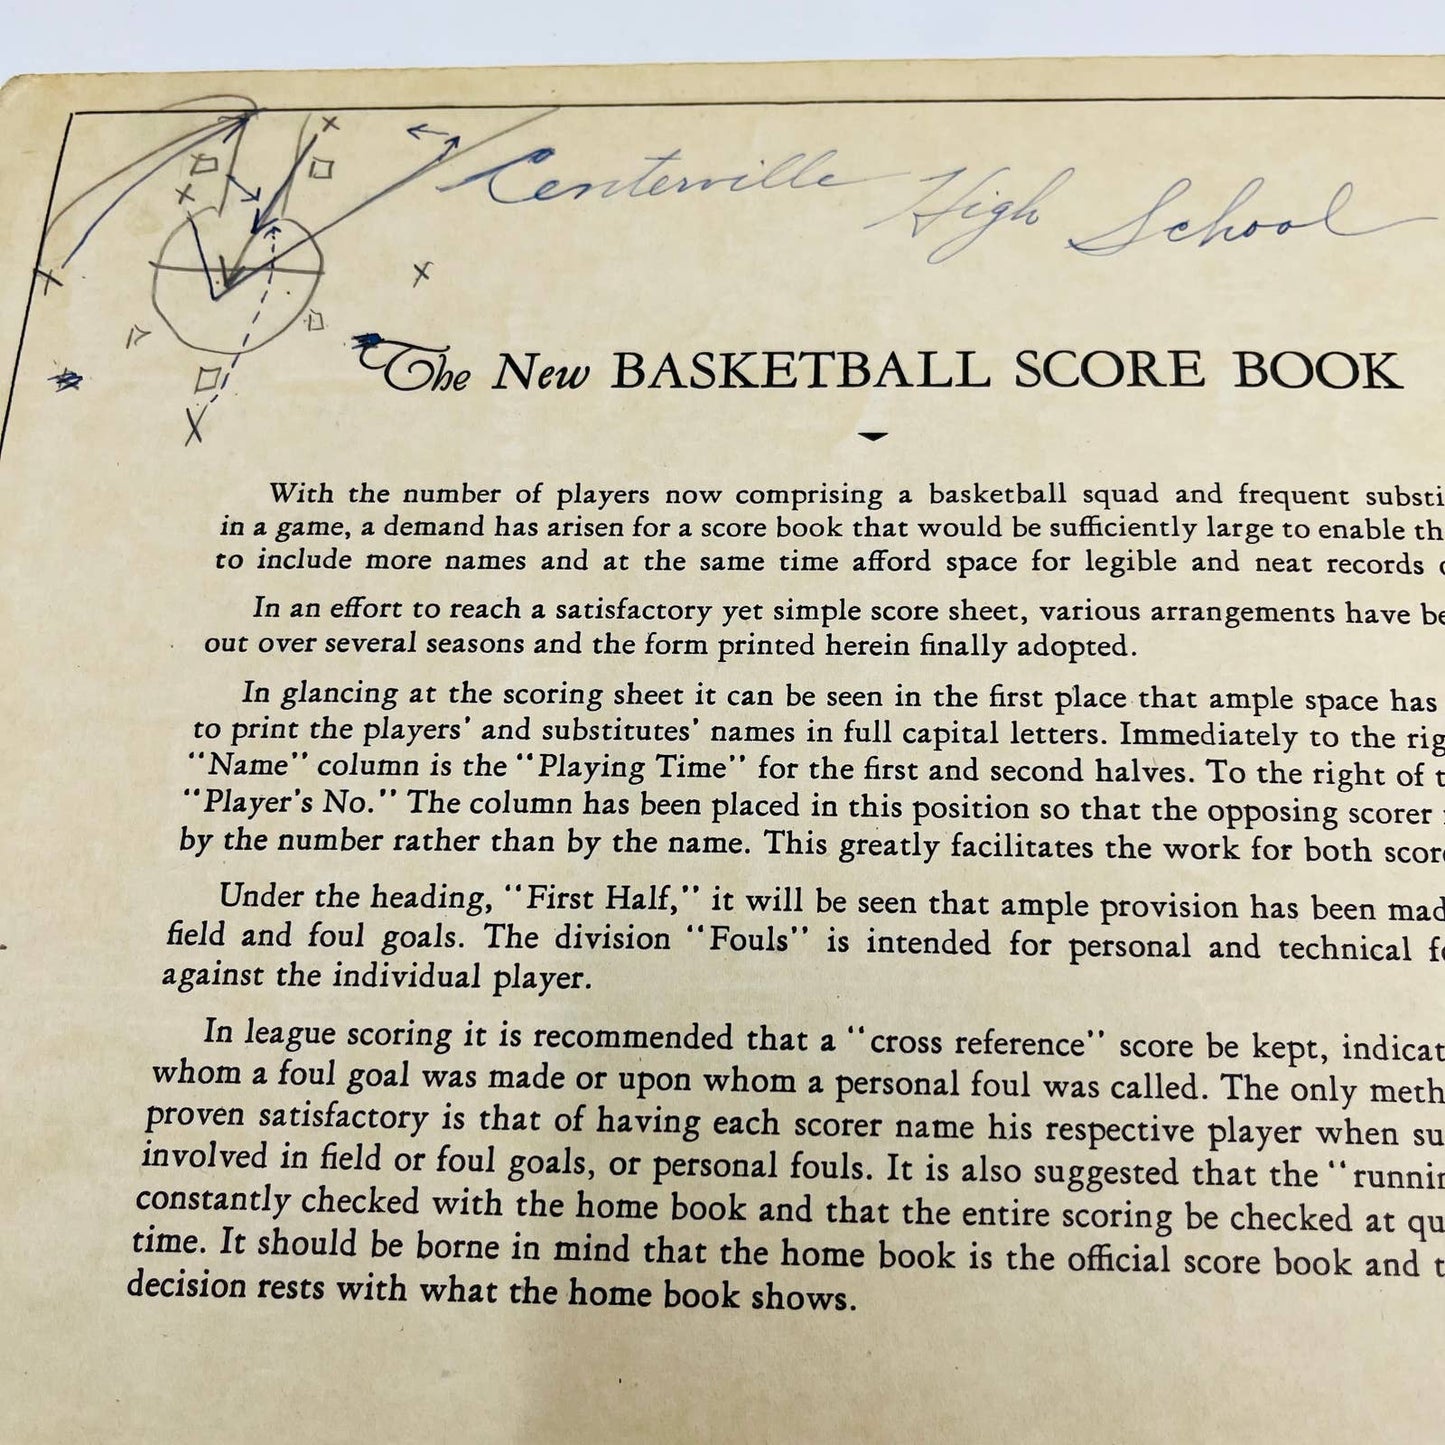 Centerville High School
The New BASKETBALL SCORE BOOK
With the number of players now comprising a basketball squad and frequent substi
in a game, a demand has arisen for a score book that would be sufficiently large to enable th
to include more names and at the same time afford space for legible and neat records
In an effort to reach a satisfactory yet simple score sheet, various arrangements have be
out over several seasons and the form printed herein finally adopted.
In glancing at the scoring sheet it can be seen in the first place that ample space has
to print the players' and substitutes' names in full capital letters. Immediately to the rig
"Name" column is the "Playing Time" for the first and second halves. To the right of t
"Player's No." The column has been placed in this position so that the opposing scorer
by the number rather than by the name. This greatly facilitates the work for both score
Under the heading, "First Half," it will be seen that ample provision has been mad
field and foul goals. The division "Fouls" is intended for personal and technical fo
against the individual player.
In league scoring it is recommended that a "cross reference" score be kept, indicat
whom a foul goal was made or upon whom a personal foul was called. The only meth
proven satisfactory is that of having each scorer name his respective player when su
involved in field or foul goals, or personal fouls. It is also suggested that the "runnin
constantly checked with the home book and that the entire scoring be checked at qu
time. It should be borne in mind that the home book is the official score book and t
decision rests with what the home book shows.